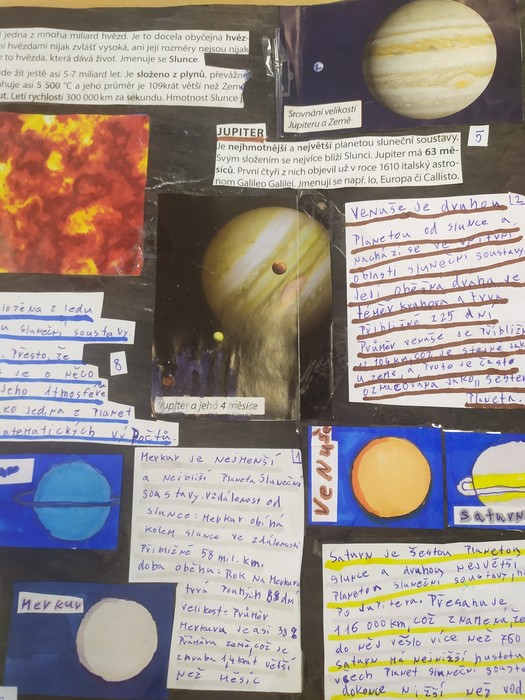 í jedna z mnoha miliard hvězd. Je to docela obyčejná hvěz-
i hvězdami nijak zvlášť vysoká, ani její rozměry nejsou nijak
e to hvězda, která dává život. Jmenuje se Slunce.
de žít ještě asi 5-7 miliard let. Je složeno z plynů, převážně
huje asi 5 500 °C a jeho průměr je 109krát větší než Země
ut. Letí rychlostí 300 000 km za sekundu. Hmotnost Slunce
Srovnání velikostí
Jupiteru a Země
JUPITER
5
Je nejhmotnější a největší planetou sluneční soustavy.
Svým složením se nejvíce blíží Slunci. Jupiter má 63 mě-
síců. První čtyři z nich objevil už v roce 1610 italský astro-
nom Galileo Galilei. Jmenují se např. Io, Europa či Callisto.
Venuše je druhou 2
Planetou od slunce a
nachází se ve vnitřní
oblasti sluneční soustavy
Její oběžná dráha je
téměř kruhová a trvá
Přibližně 225 dní
Průměr venuše je Přibliž
12 104 km, což je stejně jako
u země, a Proto je často
označována jako,, sester
Planeta.
ložena z ledu
u sluneční soustavy
. Přesto, že
8
se o něco
jeho atmosféře
ko jediná z Planet
atematických vý Počtů.
Jupiter a jeho 4 měsíce
Merkur je nejmenší 1
a nejbližší Planeta sluneční
soustavy. vzdálenost od
slunce: Merkur obíhá
kolem slunce ve vzdálenosti
Přibližně 58 mil. km.
doba oběhu: Rok na Merkuru
trvá Pouhých 88 dní
velikost: Průměr
Merkuru je asi 38 %
Průměru země, což je
zhruba 1,4 krát větší
než Měsíc
Venuše
saturn
Merkur
Saturn je šestou Planetou
slunce a druhou největší
Planetou sluneční soustavy, h
Po Jupiteru. Přesahuje
116 000 km, což znamená, že
do něj vešlo více než 760
saturn má nejnižší hustotu
všech Planet sluneční soust
dokonce nižší než vod